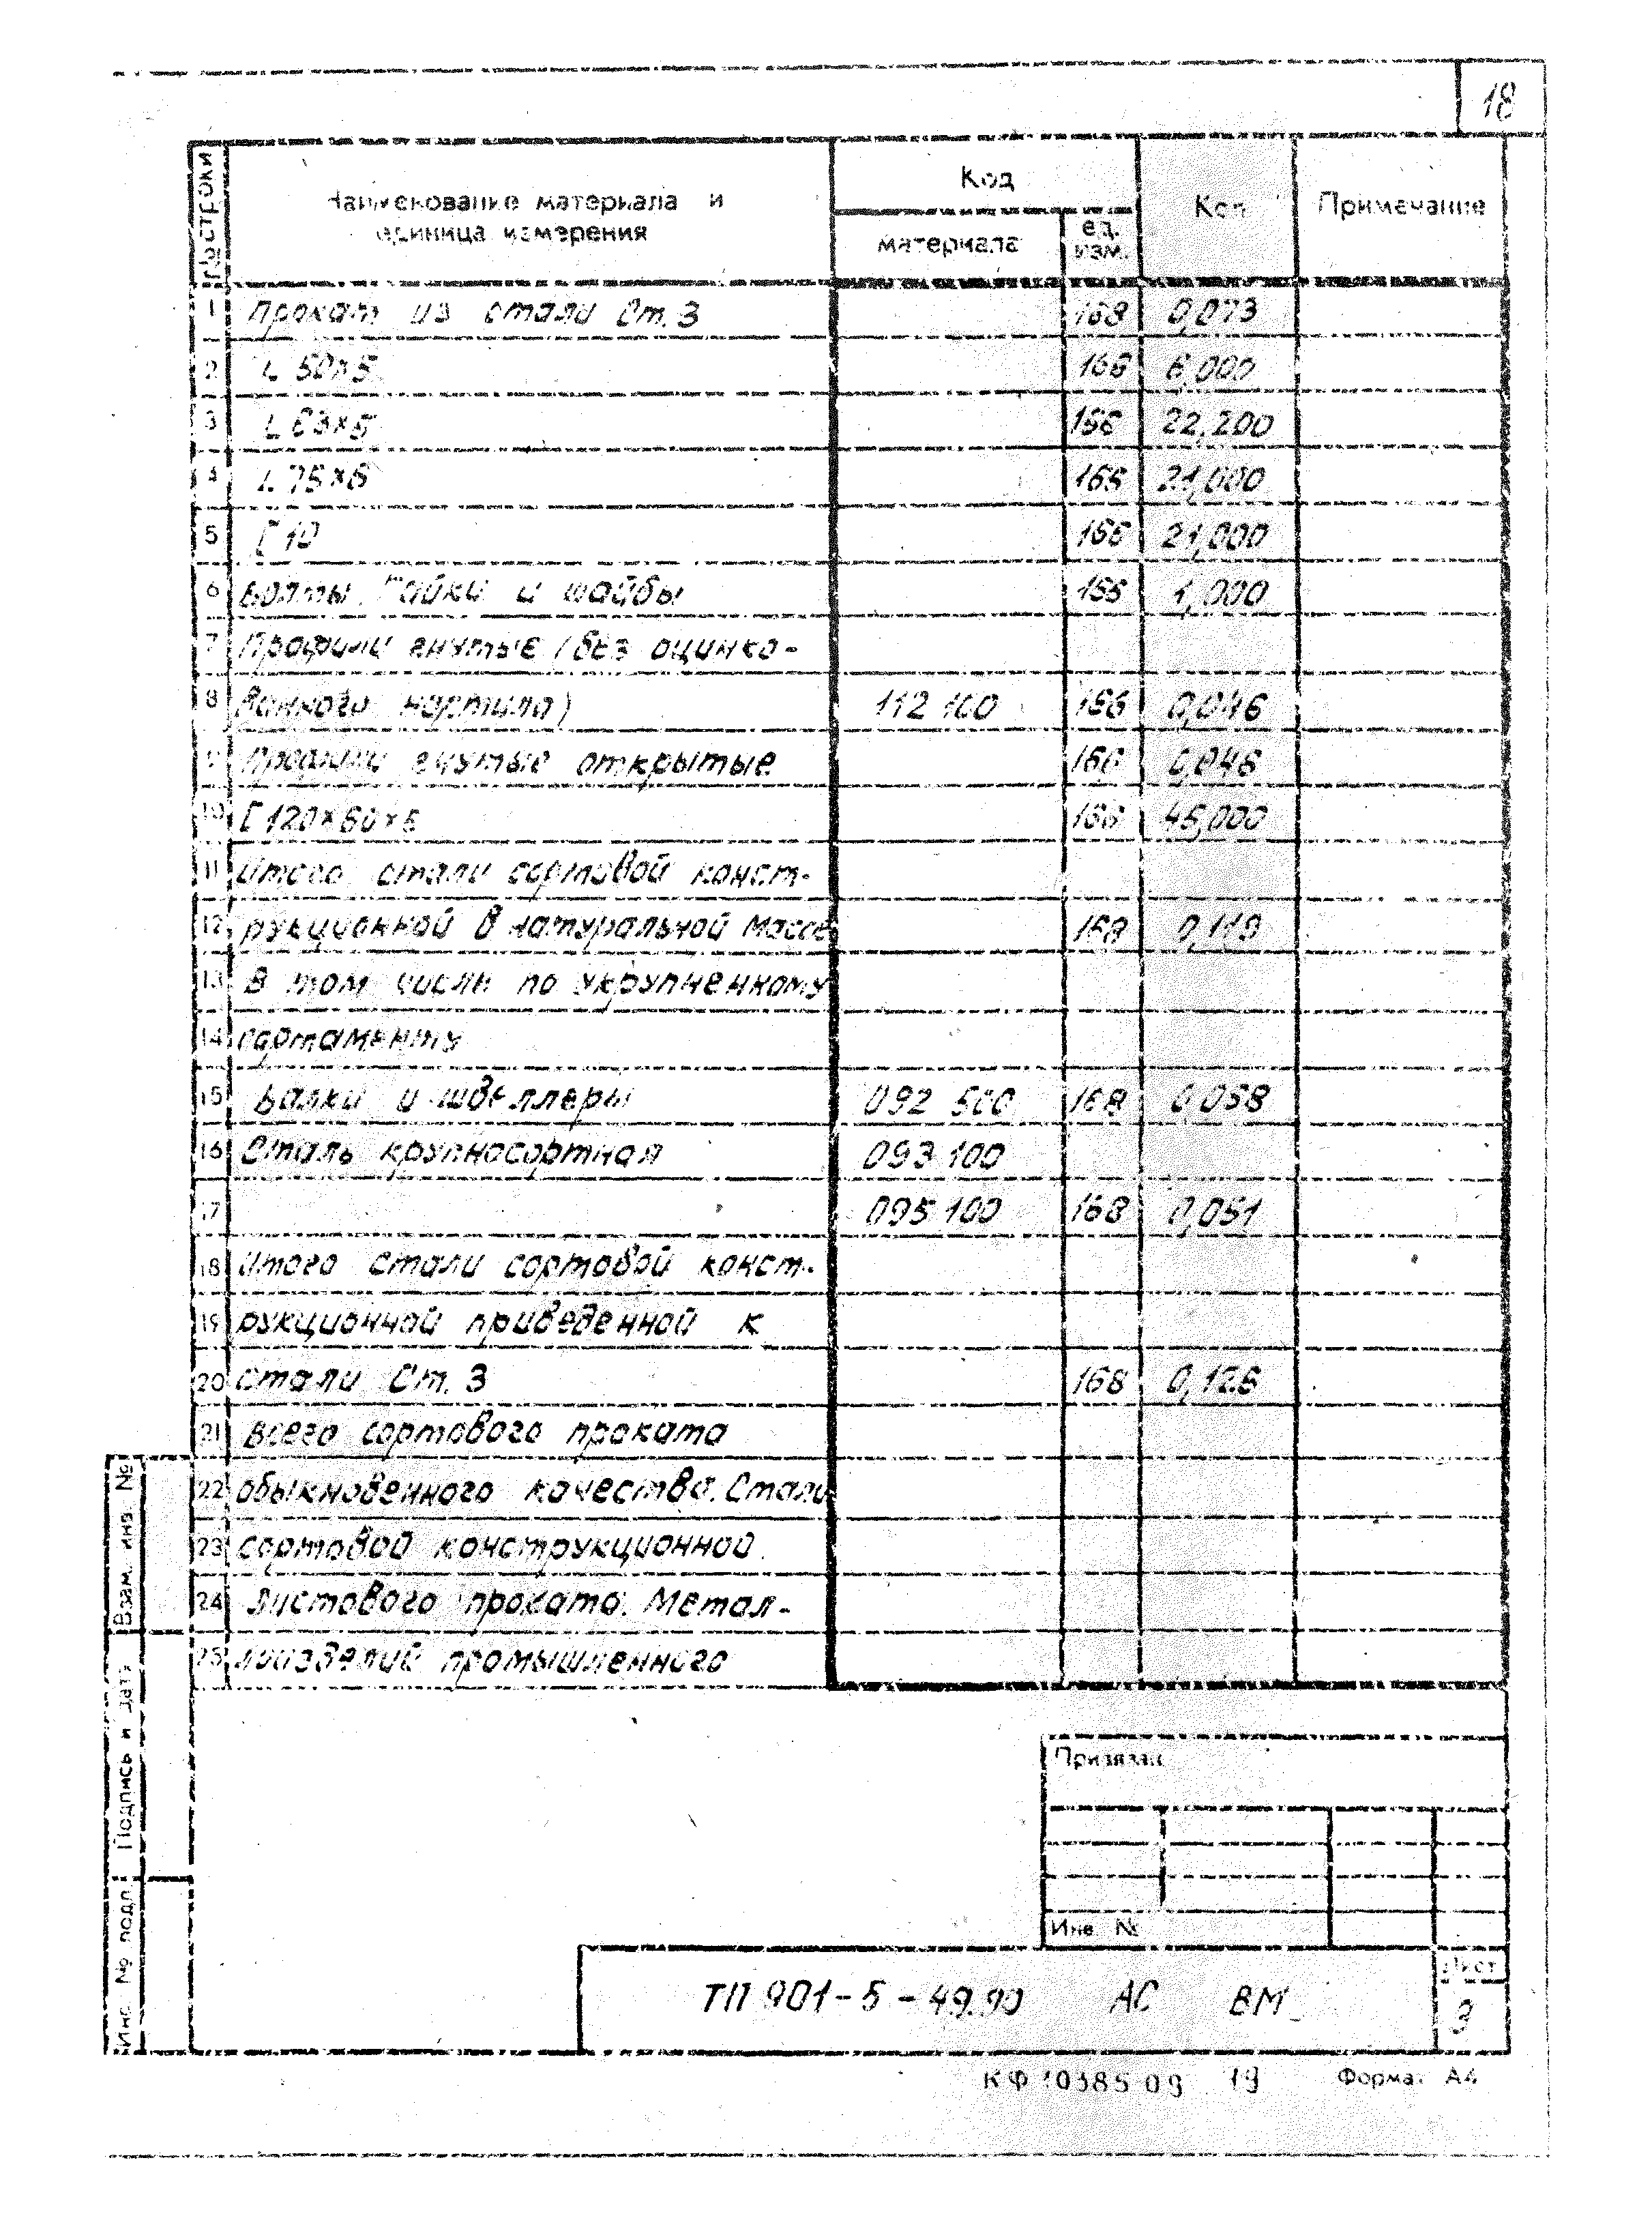 18
№ строки
Наименование материала и
единица измерения
Код
материала
ед.
изм.
Кол.
Примечание
1 Прокат из стали Ст. 3 168 0,073
2 L 50×5 166 6,000
3 L 63×5 166 22,200
4 L 75×6 166 21,000
5 [ 10 166 21,000
6 Болты. Гайки и шайбы 166 1,000
7 Профили гнутые (без оцинко-
8 ванного настила) 112 100 166 0,046
9 Профили гнутые открытые 166 0,046
10 [ 120×60×5 166 45,000
11 Итого стали сортовой конст-
12 рукционной в натуральной массе 168 0,119
13 В том числе по укрупненному
14 сортаменту
15 Балки и швеллеры 092 500 168 0,068
16 Сталь крупносортная 093 100
17 095 100 168 0,051
18 Итого стали сортовой конст-
19 рукционной приведенной к
20 стали Ст. 3 168 0,126
21 Всего сортового проката
22 обыкновенного качества. Стали
23 сортовой конструкционной.
24 Листового проката. Метал-
25 лоизделий промышленного
Взам. инв. №
Подпись и дата
Инв. № подл.
Привязан
Инв. №
ТП 901-5-49.90 АС ВМ
Лист
3
КФ 10385-09 19 Формат А4